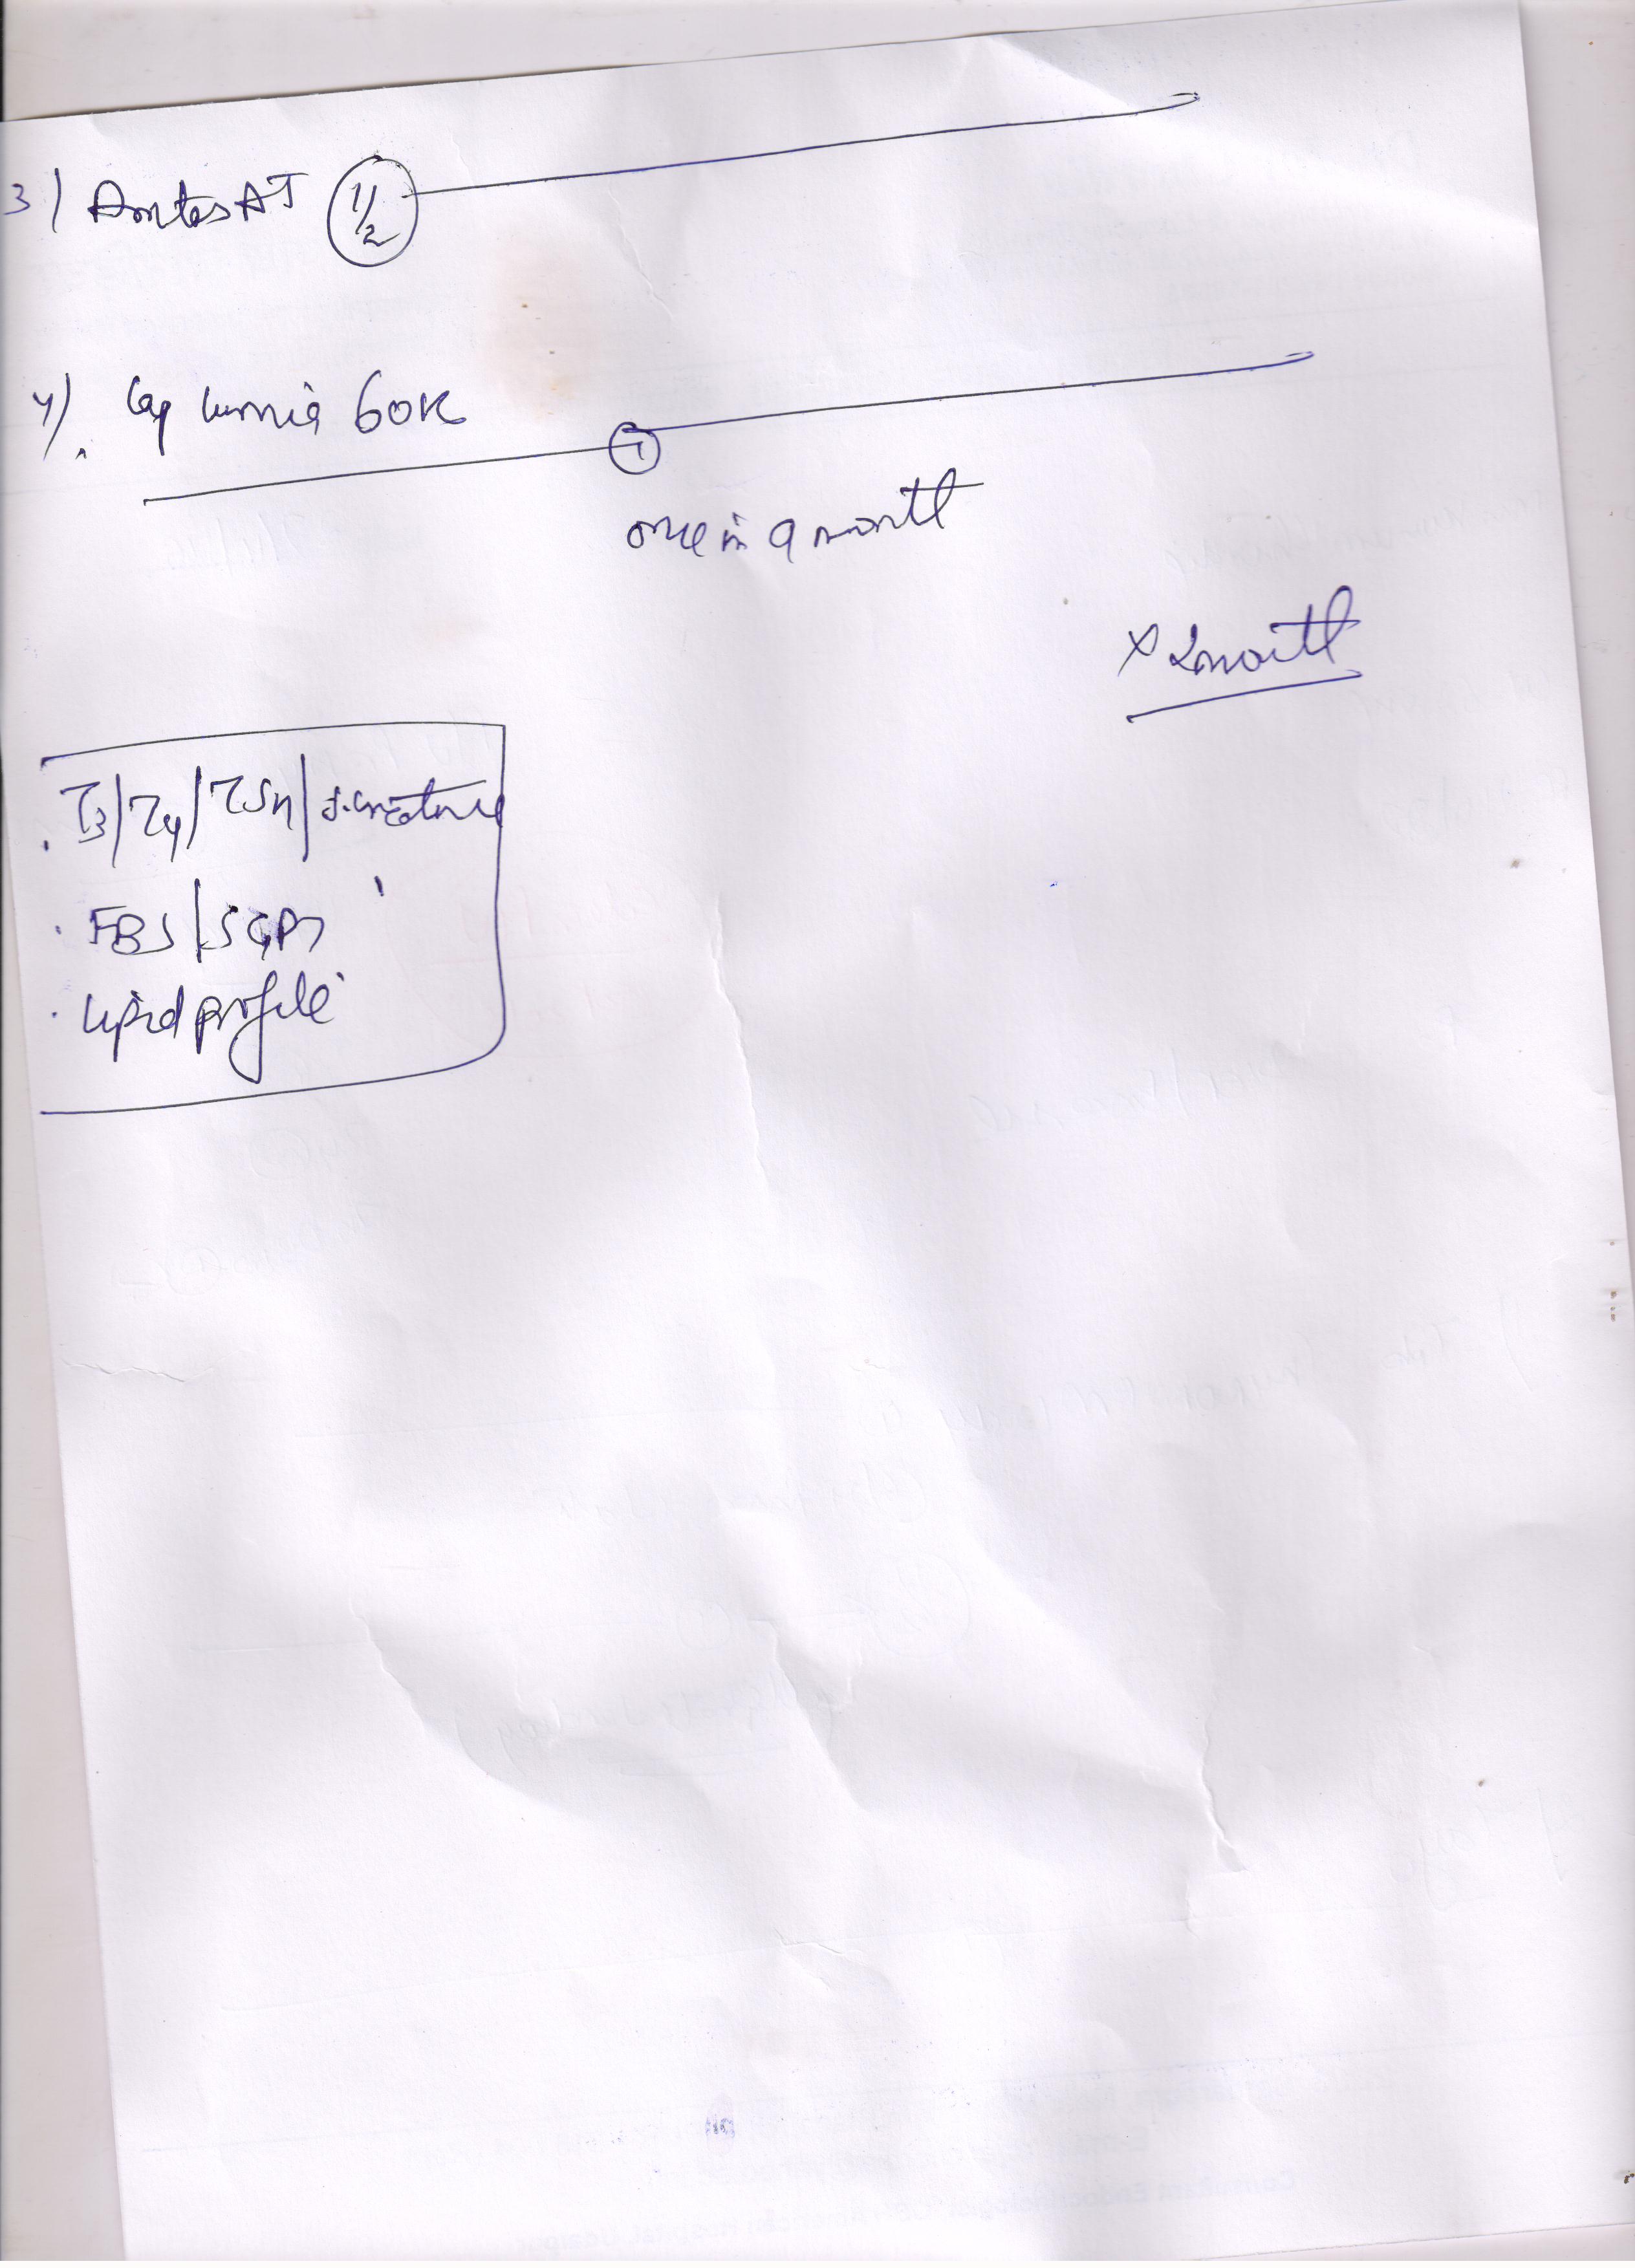 3) Amtas AT 1/2
4). Cap Lumia 60K
1
once in a month
x 2month
. T3/T4/TSH/S.creatinine
. FBS/SGPT
. Lipid profile